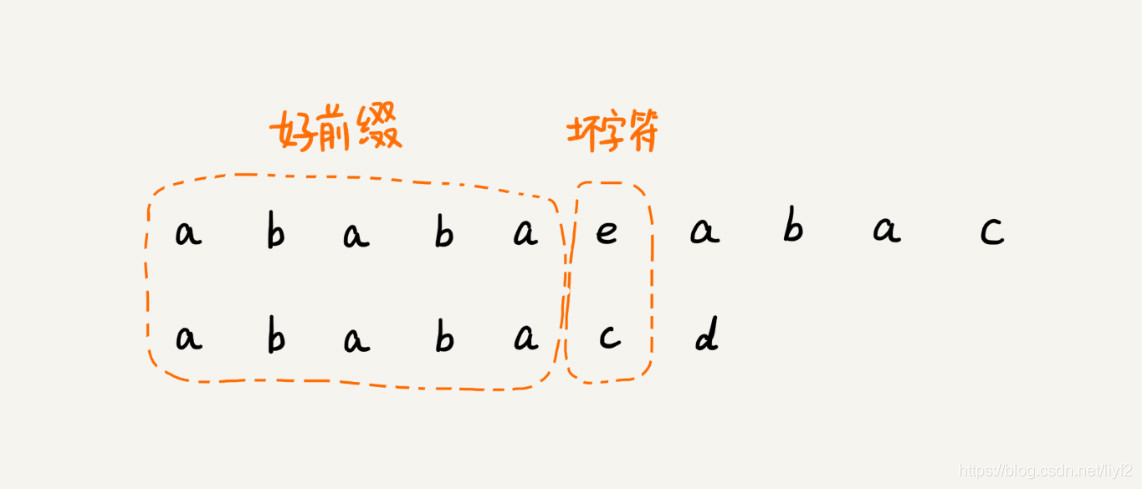 好前缀 坏字符
a b a b a e a b a c
a b a b a c d
https://blog.csdn.net/liyf2